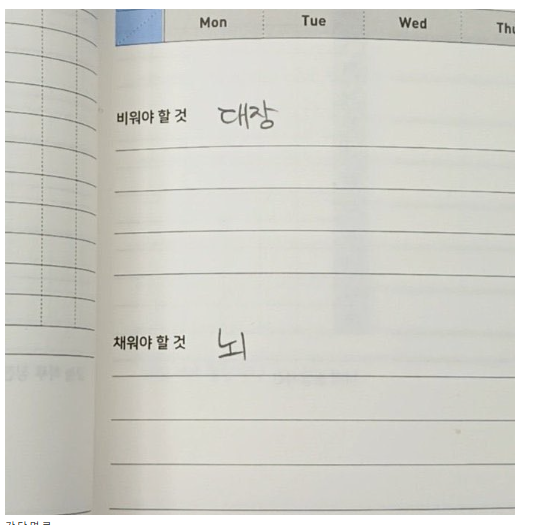 Mon Tue Wed
비워야 할 것 대장
채워야 할 것 뇌